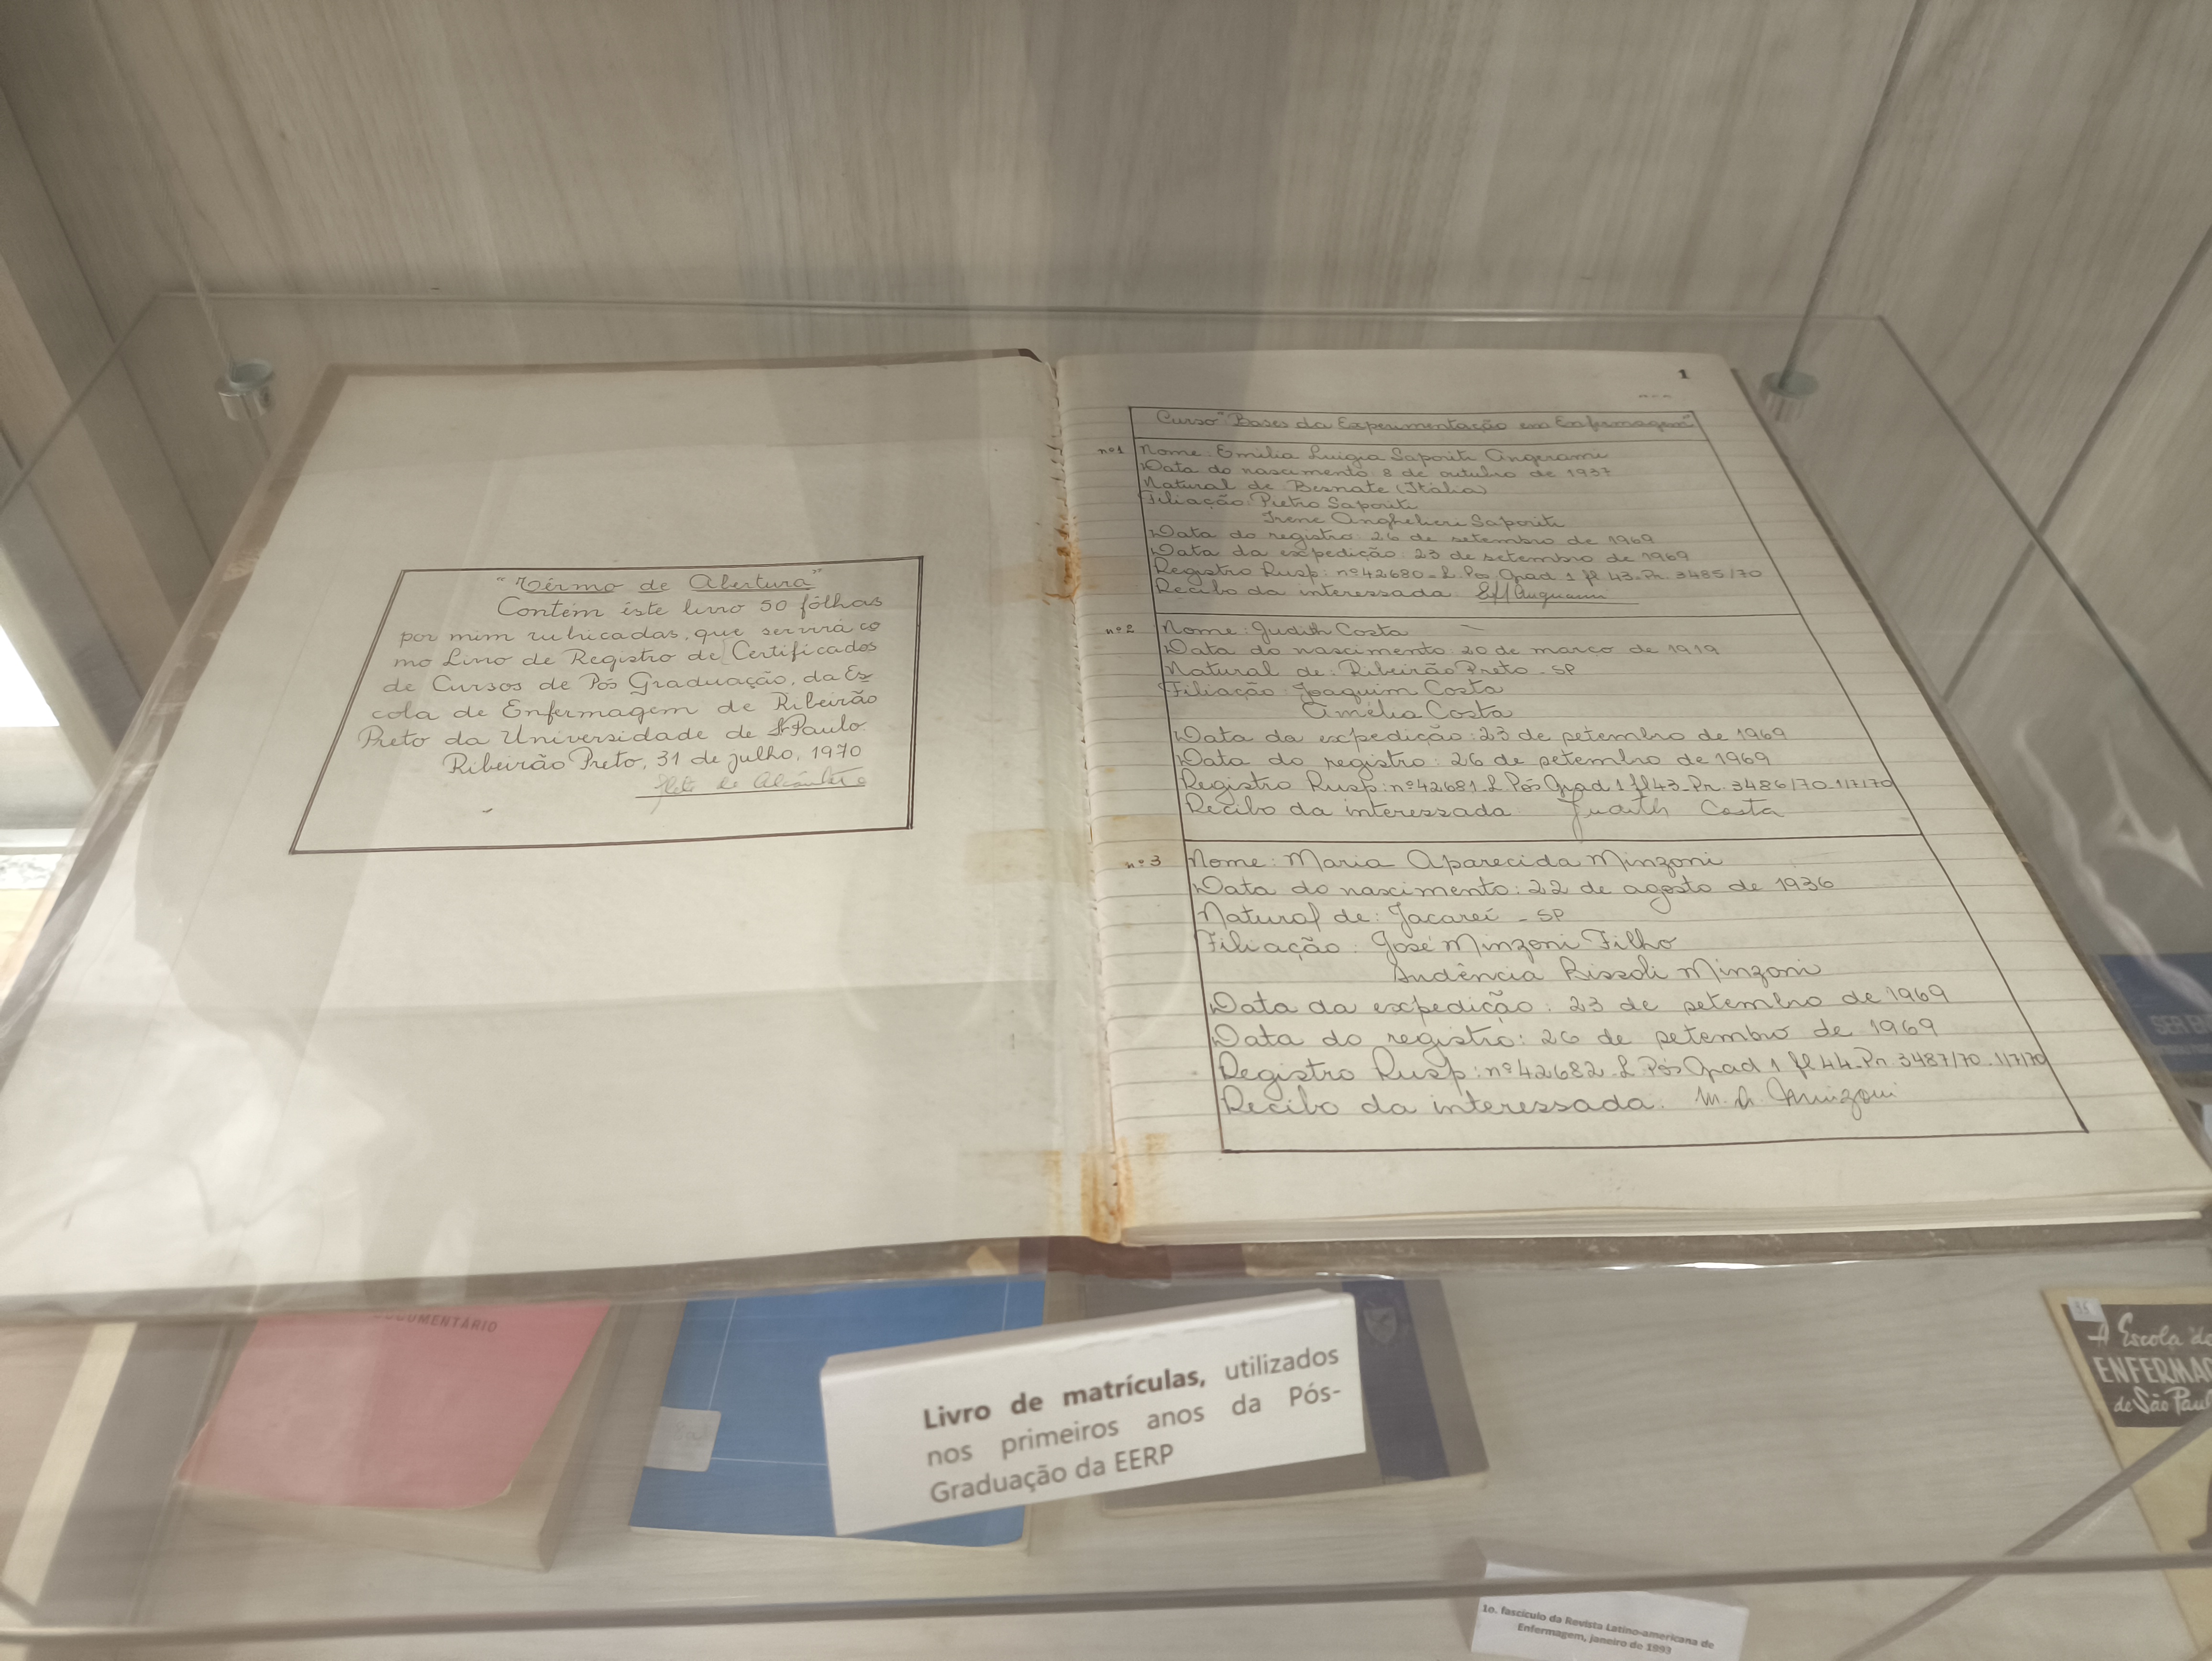 "Têrmo de Abertura"
Contém êste livro 50 fôlhas
por mim rubricadas, que servirá co
mo Livro de Registro de Certificados
de Cursos de Pós Graduação, da Es
cola de Enfermagem de Ribeirão
Preto da Universidade de S. Paulo.
Ribeirão Preto, 31 de julho, 1970
de Alcântara
1
Curso "Bases da Experimentação em Enfermagem"
nº1 Nome: Emilia Luigia Saporiti Angerami
Data do nascimento: 8 de outubro de 1937
Natural de Besnate (Itália)
Filiação: Pietro Saporiti
Irene Saporiti
Data do registro: 26 de setembro de 1969
Data da expedição: 23 de setembro de 1969
Registro Rusp: nº42680-L. Pós Grad 1 fl 43-Pr. 3485/70
Recibo da interessada
nº2 Nome: Judith Costa
Data do nascimento: 20 de março de 1919
Natural de: Ribeirão Preto - SP
Filiação: Joaquim Costa
Amélia Costa
Data da expedição: 23 de setembro de 1969
Data do registro: 26 de setembro de 1969
Registro Rusp: nº42681-L Pós Grad 1 fl43-Pr. 3486/70-1/7/70
Recibo da interessada Judith Costa
nº3 Nome: Maria Aparecida Minzoni
Data do nascimento: 22 de agosto de 1936
Natural de: Jacareí - SP
Filiação: José Minzoni Filho
Rissoli Minzoni
Data da expedição: 23 de setembro de 1969
Data do registro: 26 de setembro de 1969
Registro Rusp: nº42682-L Pós Grad 1 fl 44-Pr. 3487/70-1/7/70
Recibo da interessada: M. A. Minzoni
DOCUMENTÁRIO
Livro de matrículas, utilizados
nos primeiros anos da Pós-
Graduação da EERP
SER
35
A Escola de
ENFERMAG
de São Paul
1o. fascículo da Revista Latino-americana de
Enfermagem, janeiro de 1993